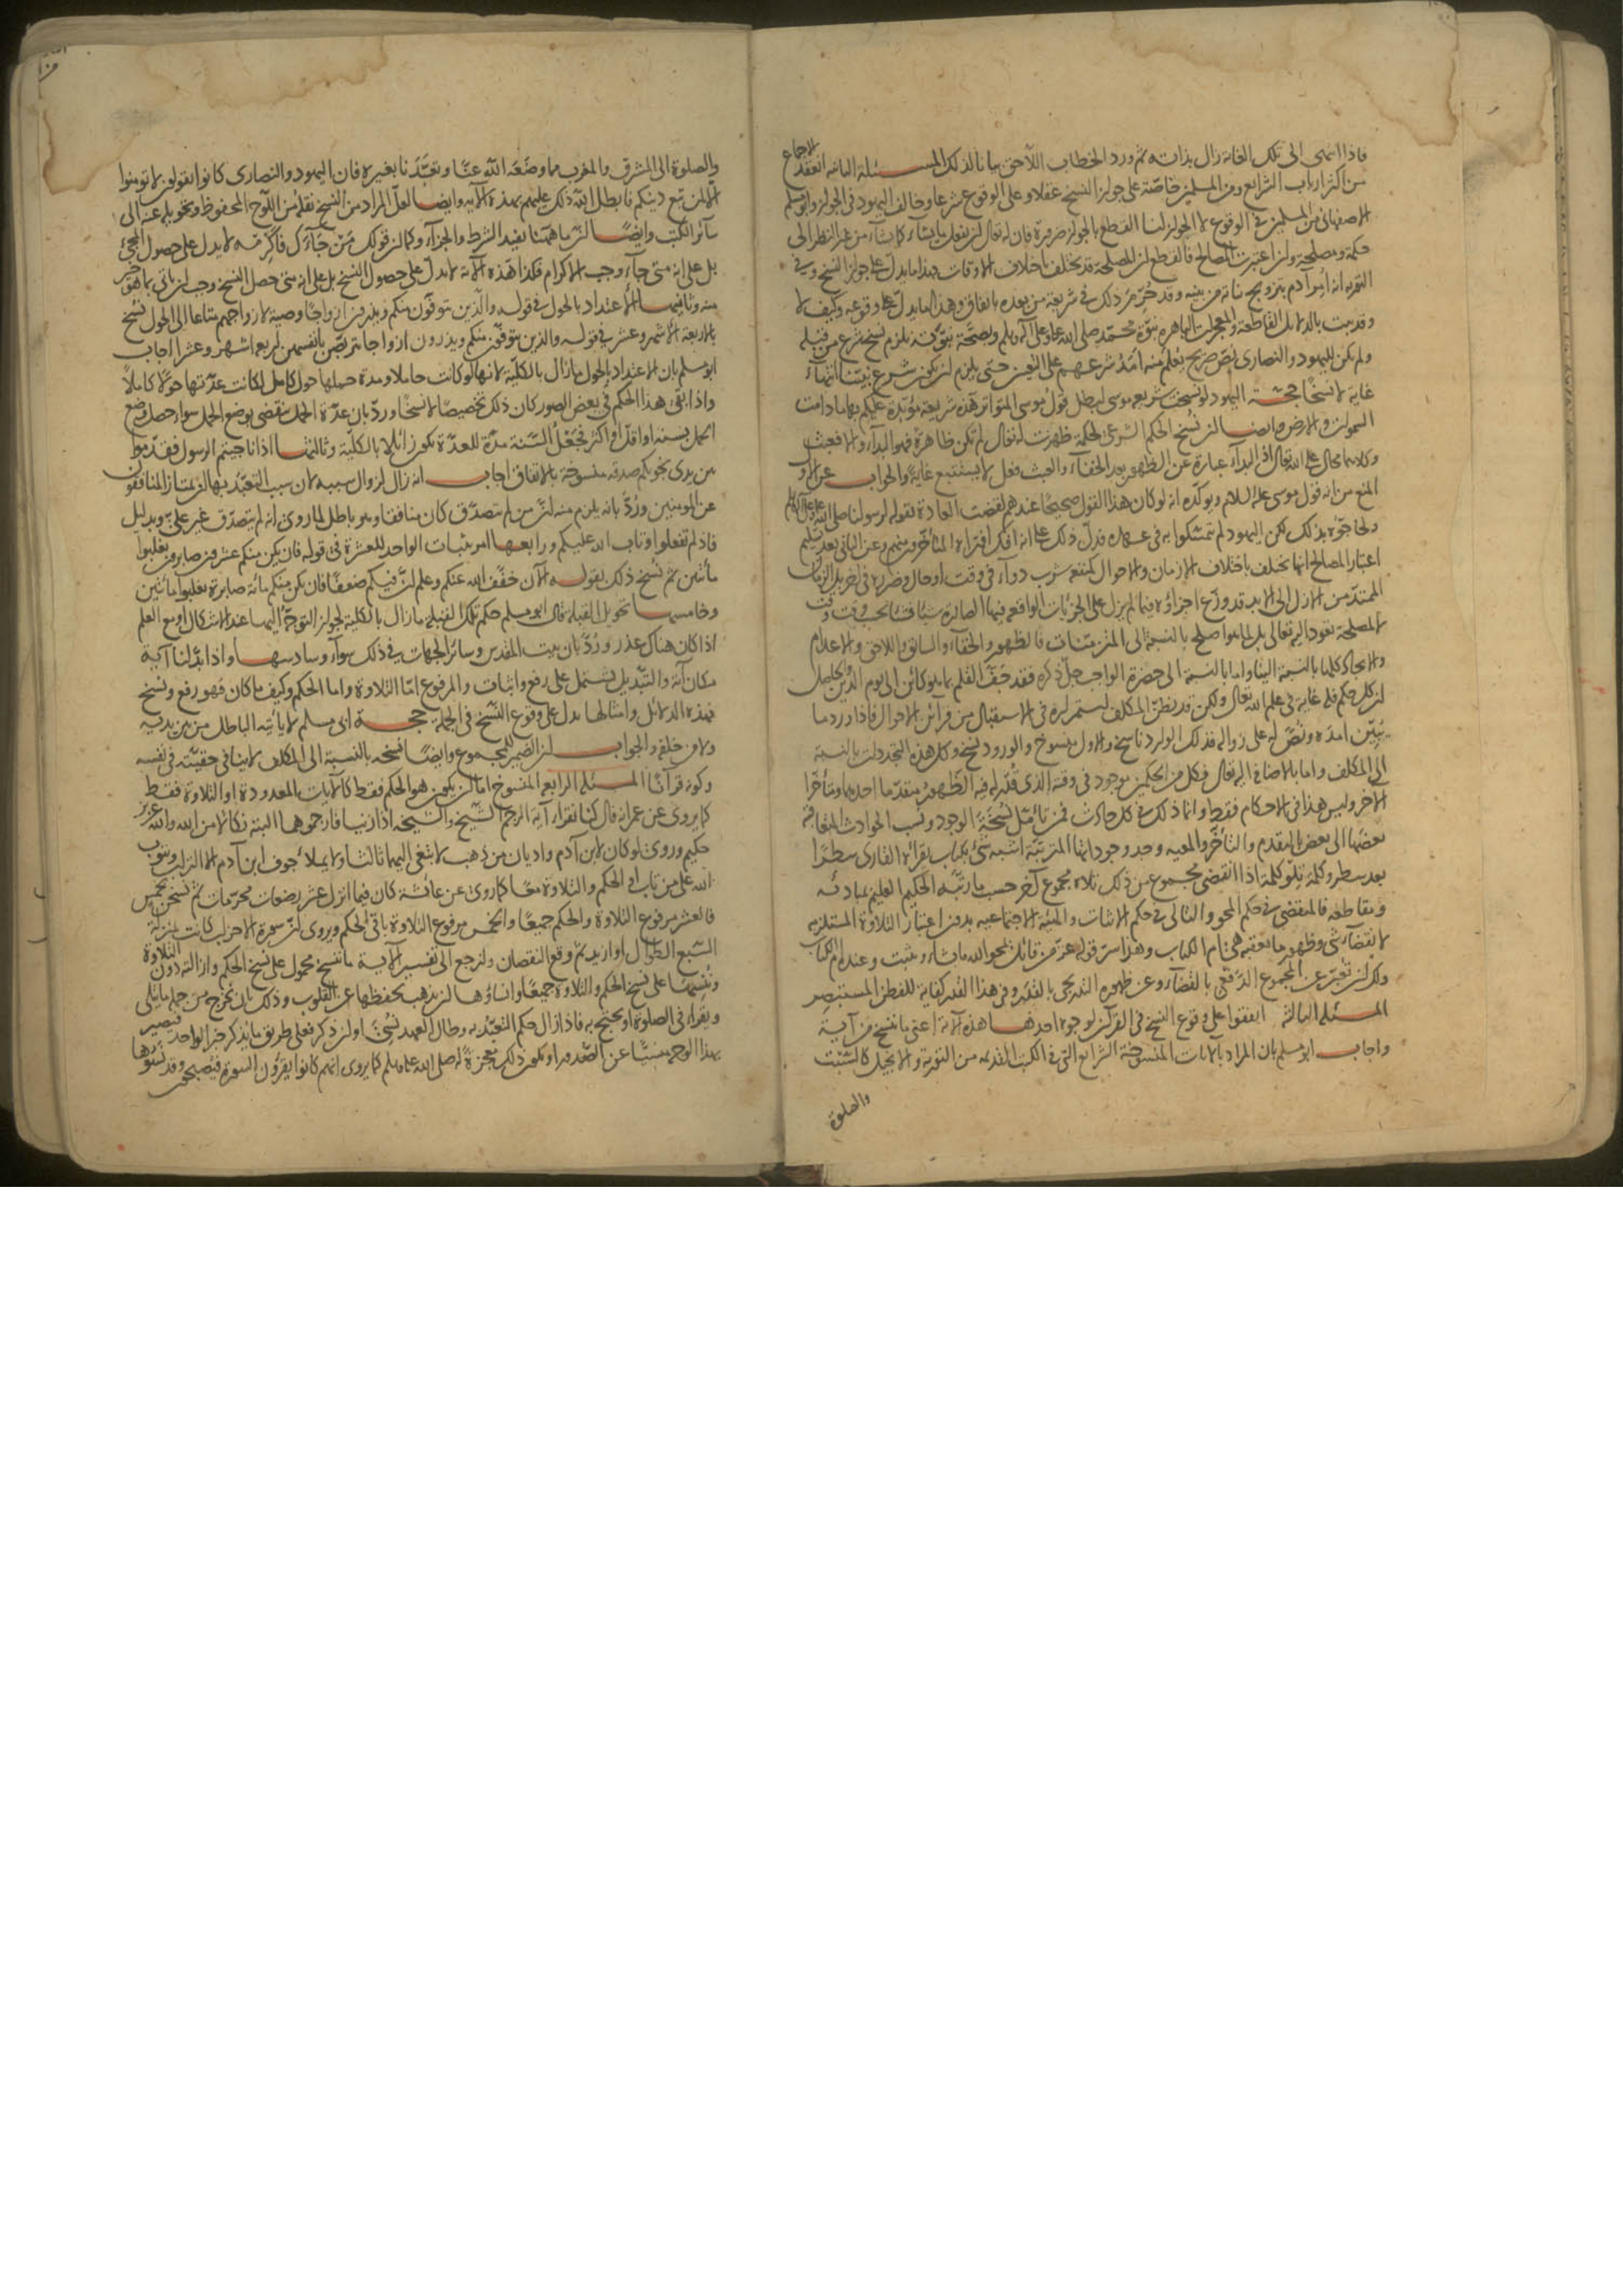 فاذا انتهى الى تلك الغاية زال بذاته ثم ورد الخطاب اللاحق بيانا لذلك المسئلة الثانية انعقد الاجماع
من اكثر ارباب الشرائع ومن المسلمين خاصة على جواز النسخ عقلا وعلى الوقوع شرعا وخالف اليهود في الجواز وابو مسلم
الاصفهاني من المسلمين في الوقوع لا الجواز لنا القطع بالجواز ضرورة فان له تعالى ان يفعل ما يشاء كما يشاء من غير النظر الى
حكمة ومصلحة وان اعتبرت المصالح فالقطع ان المصلحة قد تختلف باختلاف الاوقات فهذا ما يدل على جواز النسخ وفي
التورية انه امر آدم بتزويج بناته من بنيه وقد حرم ذلك في شريعة من بعده باتفاق وهذا مما يدل على وقوعه وكيف لا
وقد ثبت بالدلائل القاطعة والمعجزات الباهرة نبوة محمد صلى الله عليه وعلى آله وسلم وبصحة نبوته يلزم نسخ شرع من قبله
ولم يكن لليهود والنصارى نص صريح يعلم منه امد شرعهم على التعيين حتى يلزم ان يكون شرع نبينا انتهاء
غاية لا نسخا حجة اليهود لو نسخت شريعة موسى لبطل قول موسى المتواتر هذه شريعة مؤبدة عليكم بها ما دامت
السموات والارض وايضا ان نسخ الحكم الشرعي لحكمة ظهرت له تعالى لم تكن ظاهرة فهو البداء والا فعبث
وكلاهما محال على الله تعالى اذ البداء عبارة عن الظهور بعد الخفاء والعبث فعل لا يستتبع غاية والجواب عن الاول
المنع من انه قول موسى عليه السلام ويؤكده انه لو كان هذا القول صحيحا عندهم لقضت العادة بقوله لرسولنا صلى الله عليه وعلى آله وسلم
ولحاجوه بذلك لكن اليهود لم تتمسكوا به في عهده فدل ذلك على انه افك افتراه المتأخرون منهم وعن الثاني بعد تسليم
اعتبار المصالح انها تختلف باختلاف الازمان والاحوال كمنفعة شرب دواء في وقت او حال وضرره في آخر بل الزمان
الممتد من الازل الى الابد قد وزع اجزاؤه فيما لم يزل على الجزئيات الواقعة فيها الصادرة شيئا فشيئا بحسب وقت وقت
لا لمصلحة تعود اليه تعالى بل لما هو اصلح بالنسبة الى المتزمنات فالظهور والخفاء والسابق واللاحق والاعدام
والايجاد كلها بالنسبة الينا واما بالنسبة الى حضرة الواجب جل ذكره فقد جف القلم بما هو كائن الى يوم الدين والحاصل
ان كل حكم فله غاية في علم الله تعالى ولكن قد يظن المكلف استمراره في الاستقبال من قرائن الاحوال فاذا ورد ما
يبين امده ونص له على زواله فذلك الوارد ناسخ والاول منسوخ والورود نسخ وكل هذه التجددات بالنسبة
الى المكلف واما بالاضافة اليه تعالى فكل من الحكمين موجود في وقته الذي قدر له فيه الظهور متقدما احدهما ومتأخرا
الآخر وليس هذا في الاحكام فقط وانما ذلك في كل حادث فمن تأمل نسخة الوجود ونسب الحوادث المتعاقبة
بعضها الى بعض بالتقدم والتأخر والمعية وجد وجوداتها المترتبة اشبه شئ بكتاب يقرأه القارئ سطرا
بعد سطر وكلمة تلو كلمة اذا انقضى مجموع من ذلك تلاه مجموع آخر حسب ما رتبه الحكيم العليم بمبادئه
ومقاطعه فالمنقضي في حكم المحو والتالي في حكم الاثبات والهيئة الاجتماعية بدون اعتبار التلاوة المستلزمة
لانقضاء شئ وظهور ما يعقبه هي ام الكتاب وهذا سر قوله عز من قائل يمحو الله ما يشاء ويثبت وعنده ام الكتاب
ولك ان تعبر عن المجموع الدفعي بالقضاء وعن ظهوره التدريجي بالقدر وفي هذا القدر كفاية للفطن المستبصر
المسئلة الثالثة اتفقوا على وقوع النسخ في القرآن لوجوه احدها هذه الآية اعني ما ننسخ من آية
واجاب ابو مسلم بان المراد بالآيات المنسوخة الشرائع التي في الكتب القديمة من التورية والانجيل كالسبت
والصلوة
والصلوة الى المشرق والمغرب مما وضعه الله عنا وتعبدنا بغيره فان اليهود والنصارى كانوا يقولون لا تؤمنوا
الا لمن تبع دينكم فابطل الله ذلك عليهم بهذه الآية وايضا لعل المراد من النسخ نقله من اللوح المحفوظ وتحويله عنه الى
سائر الكتب وايضا ان ما ههنا يفيد الشرط والجزاء وكما ان قولك من جاءك فاكرمه لا يدل على حصول المجئ
بل على انه متى جاء وجب الاكرام فكذا هذه الآية لا تدل على حصول النسخ بل على انه متى حصل النسخ وجب ان يأتي بما هو خير
منه وثانيها الاعتداد بالحول في قوله والذين يتوفون منكم ويذرون ازواجا وصية لازواجهم متاعا الى الحول نسخ
باربعة اشهر وعشر في قوله والذين يتوفون منكم ويذرون ازواجا يتربصن بانفسهن اربعة اشهر وعشرا اجاب
ابو مسلم بان الاعتداد بالحول ما زال بالكلية لانها لو كانت حاملا ومدة حملها حول كامل لكانت عدتها حولا كاملا
واذا بقي هذا الحكم في بعض الصور كان ذلك تخصيصا لا نسخا ورد بان عدة الحمل ينقضي بوضع الحمل سواء حصل وضع
الحمل بسنة او اقل او اكثر فجعل السنة مدة للعدة يكون زائلا بالكلية وثالثها اذا ناجيتم الرسول فقدموا
بين يدي نجويكم صدقة منسوخة بالاتفاق اجاب انه زال لزوال سببه لان سبب التعبد بها ان يمتاز المنافقون
عن المؤمنين ورد بانه يلزم منه ان من لم يتصدق كان منافقا وهو باطل لما روي انه لم يتصدق غير علي وبدليل
فاذ لم تفعلوا وتاب الله عليكم ورابعها امر بثبات الواحد للعشرة في قوله فان يكن منكم عشرون صابرون يغلبوا
مائتين ثم نسخ ذلك بقوله الآن خفف الله عنكم وعلم ان فيكم ضعفا فان يكن منكم مائة صابرة يغلبوا مائتين
وخامسها تحويل القبلة قال ابو مسلم حكم تلك القبلة ما زال بالكلية لجواز التوجه اليها عند الاشكال او مع العلم
اذا كان هناك عذر ورد بان بيت المقدس وسائر الجهات في ذلك سواء وسادسها واذا بدلنا آية
مكان آية والتبديل يشتمل على رفع واثبات والمرفوع اما التلاوة واما الحكم وكيف ما كان فهو رفع ونسخ
فهذه الدلائل وامثالها تدل على وقوع النسخ في الجملة حجة ابي مسلم لا يأتيه الباطل من بين يديه
ولا من خلفه والجواب ان الضمير للمجموع وايضا نسخه بالنسبة الى المكلف لا ينافي حقيته في نفسه
وكونه قرآنا المسئلة الرابعة المنسوخ اما ان يكون هو الحكم فقط كالآيات المعدودة او التلاوة فقط
كما يروى عن عمر انه قال كنا نقرأ آية الرجم الشيخ والشيخة اذا زنيا فارجموهما البتة نكالا من الله والله عزيز
حكيم وروي لو كان لابن آدم واديان من ذهب لابتغى اليهما ثالثا ولا يملأ جوف ابن آدم الا التراب ويتوب
الله على من تاب او الحكم والتلاوة معا كما روي عن عائشة كان فيما انزل عشر رضعات محرمات ثم نسخن بخمس
فالعشر مرفوع التلاوة والحكم جميعا والخمس مرفوع التلاوة باقي الحكم ويروى ان سورة الاحزاب كانت بمنزلة
السبع الطوال او ازيد ثم وقع النقصان ولنرجع الى تفسير الآية ما ننسخ محمول على نسخ الحكم وازالته دون التلاوة
وننسها على نسخ الحكم والتلاوة جميعا وانساؤها ان يذهب بحفظها عن القلوب وذلك بان تخرج من جملة ما يتلى
ويقرأ في الصلوة او يحتج به فاذا زال حكم التعبد به وطال العهد نسي او ان ذكر فعلى طريق ما يذكر خبر الواحد فيصير
بهذا الوجه منسيا عن الصدور او يكون ذلك معجزة له صلى الله عليه وسلم كما يروى انهم كانوا يقرؤن السورة فيصبحون وقد نسوها